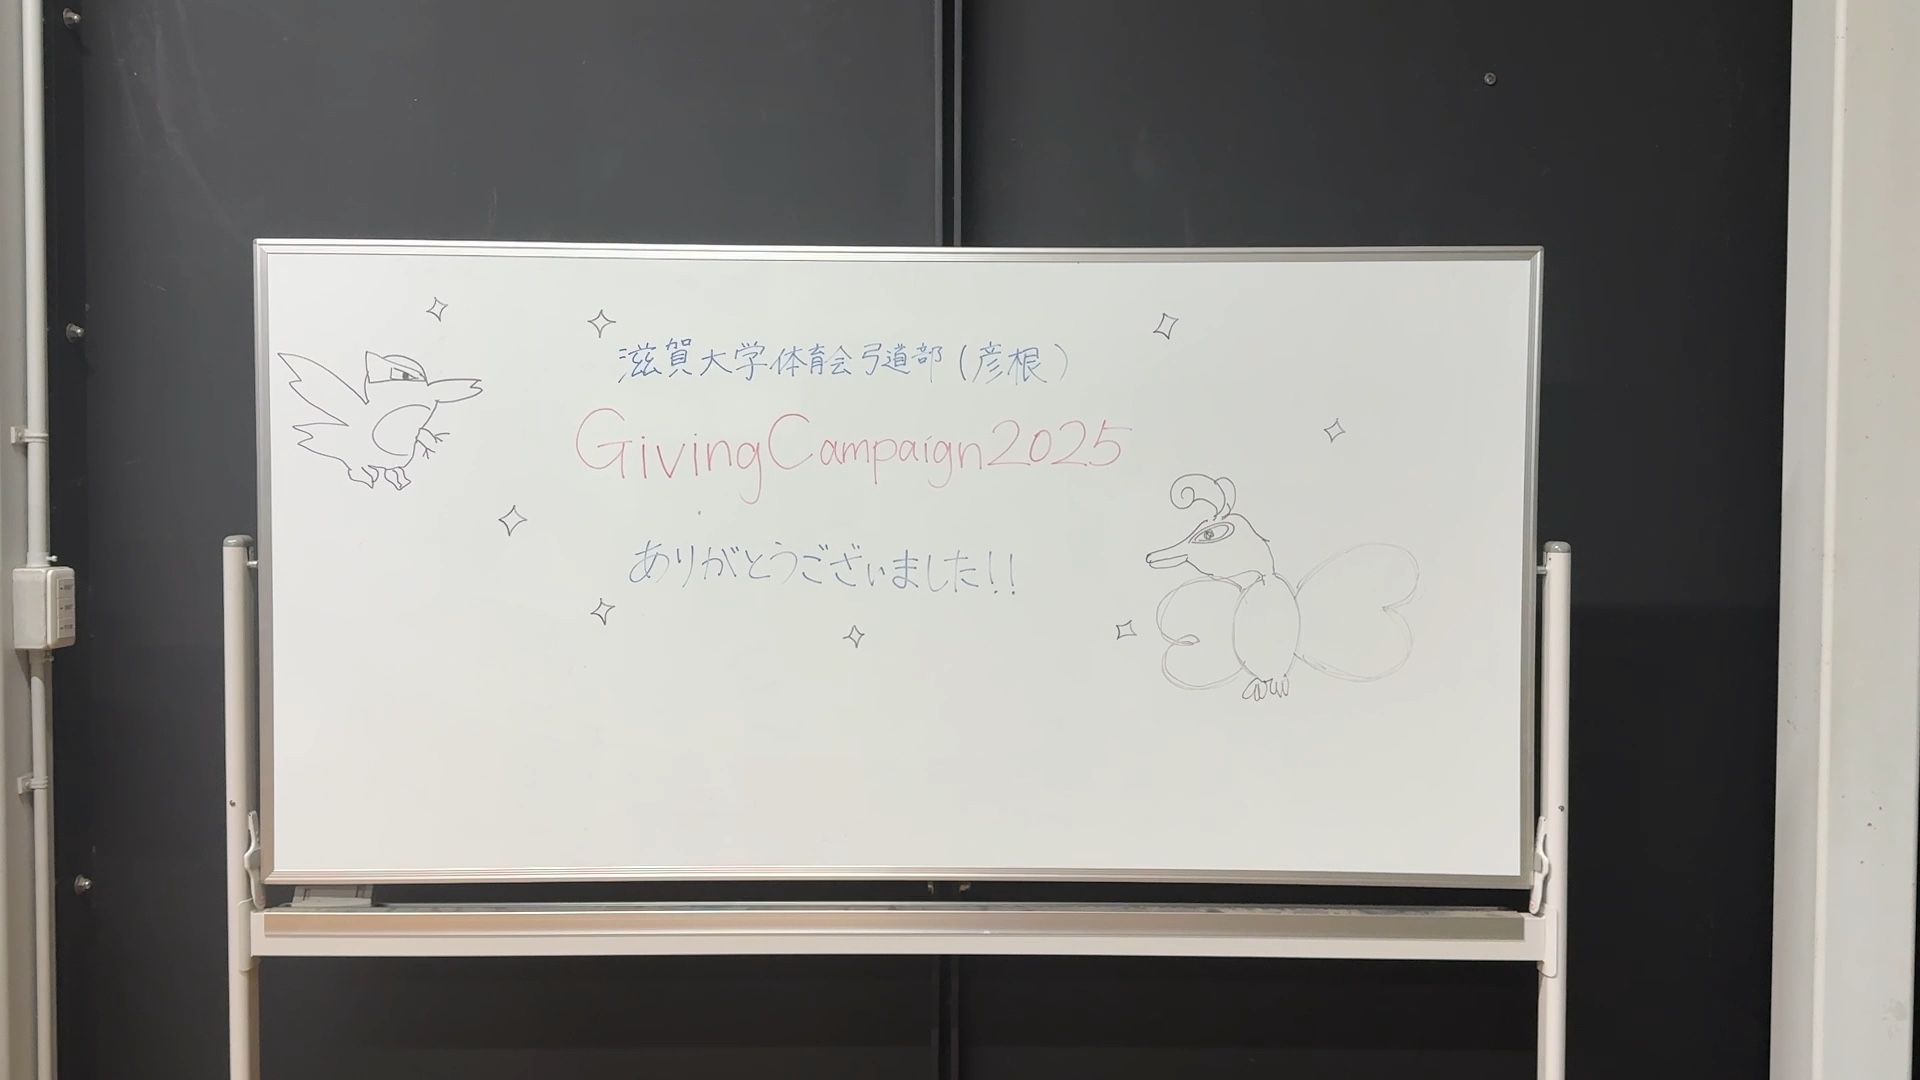 滋賀大学体育会弓道部(彦根)
GivingCampaign2025
ありがとうございました!!